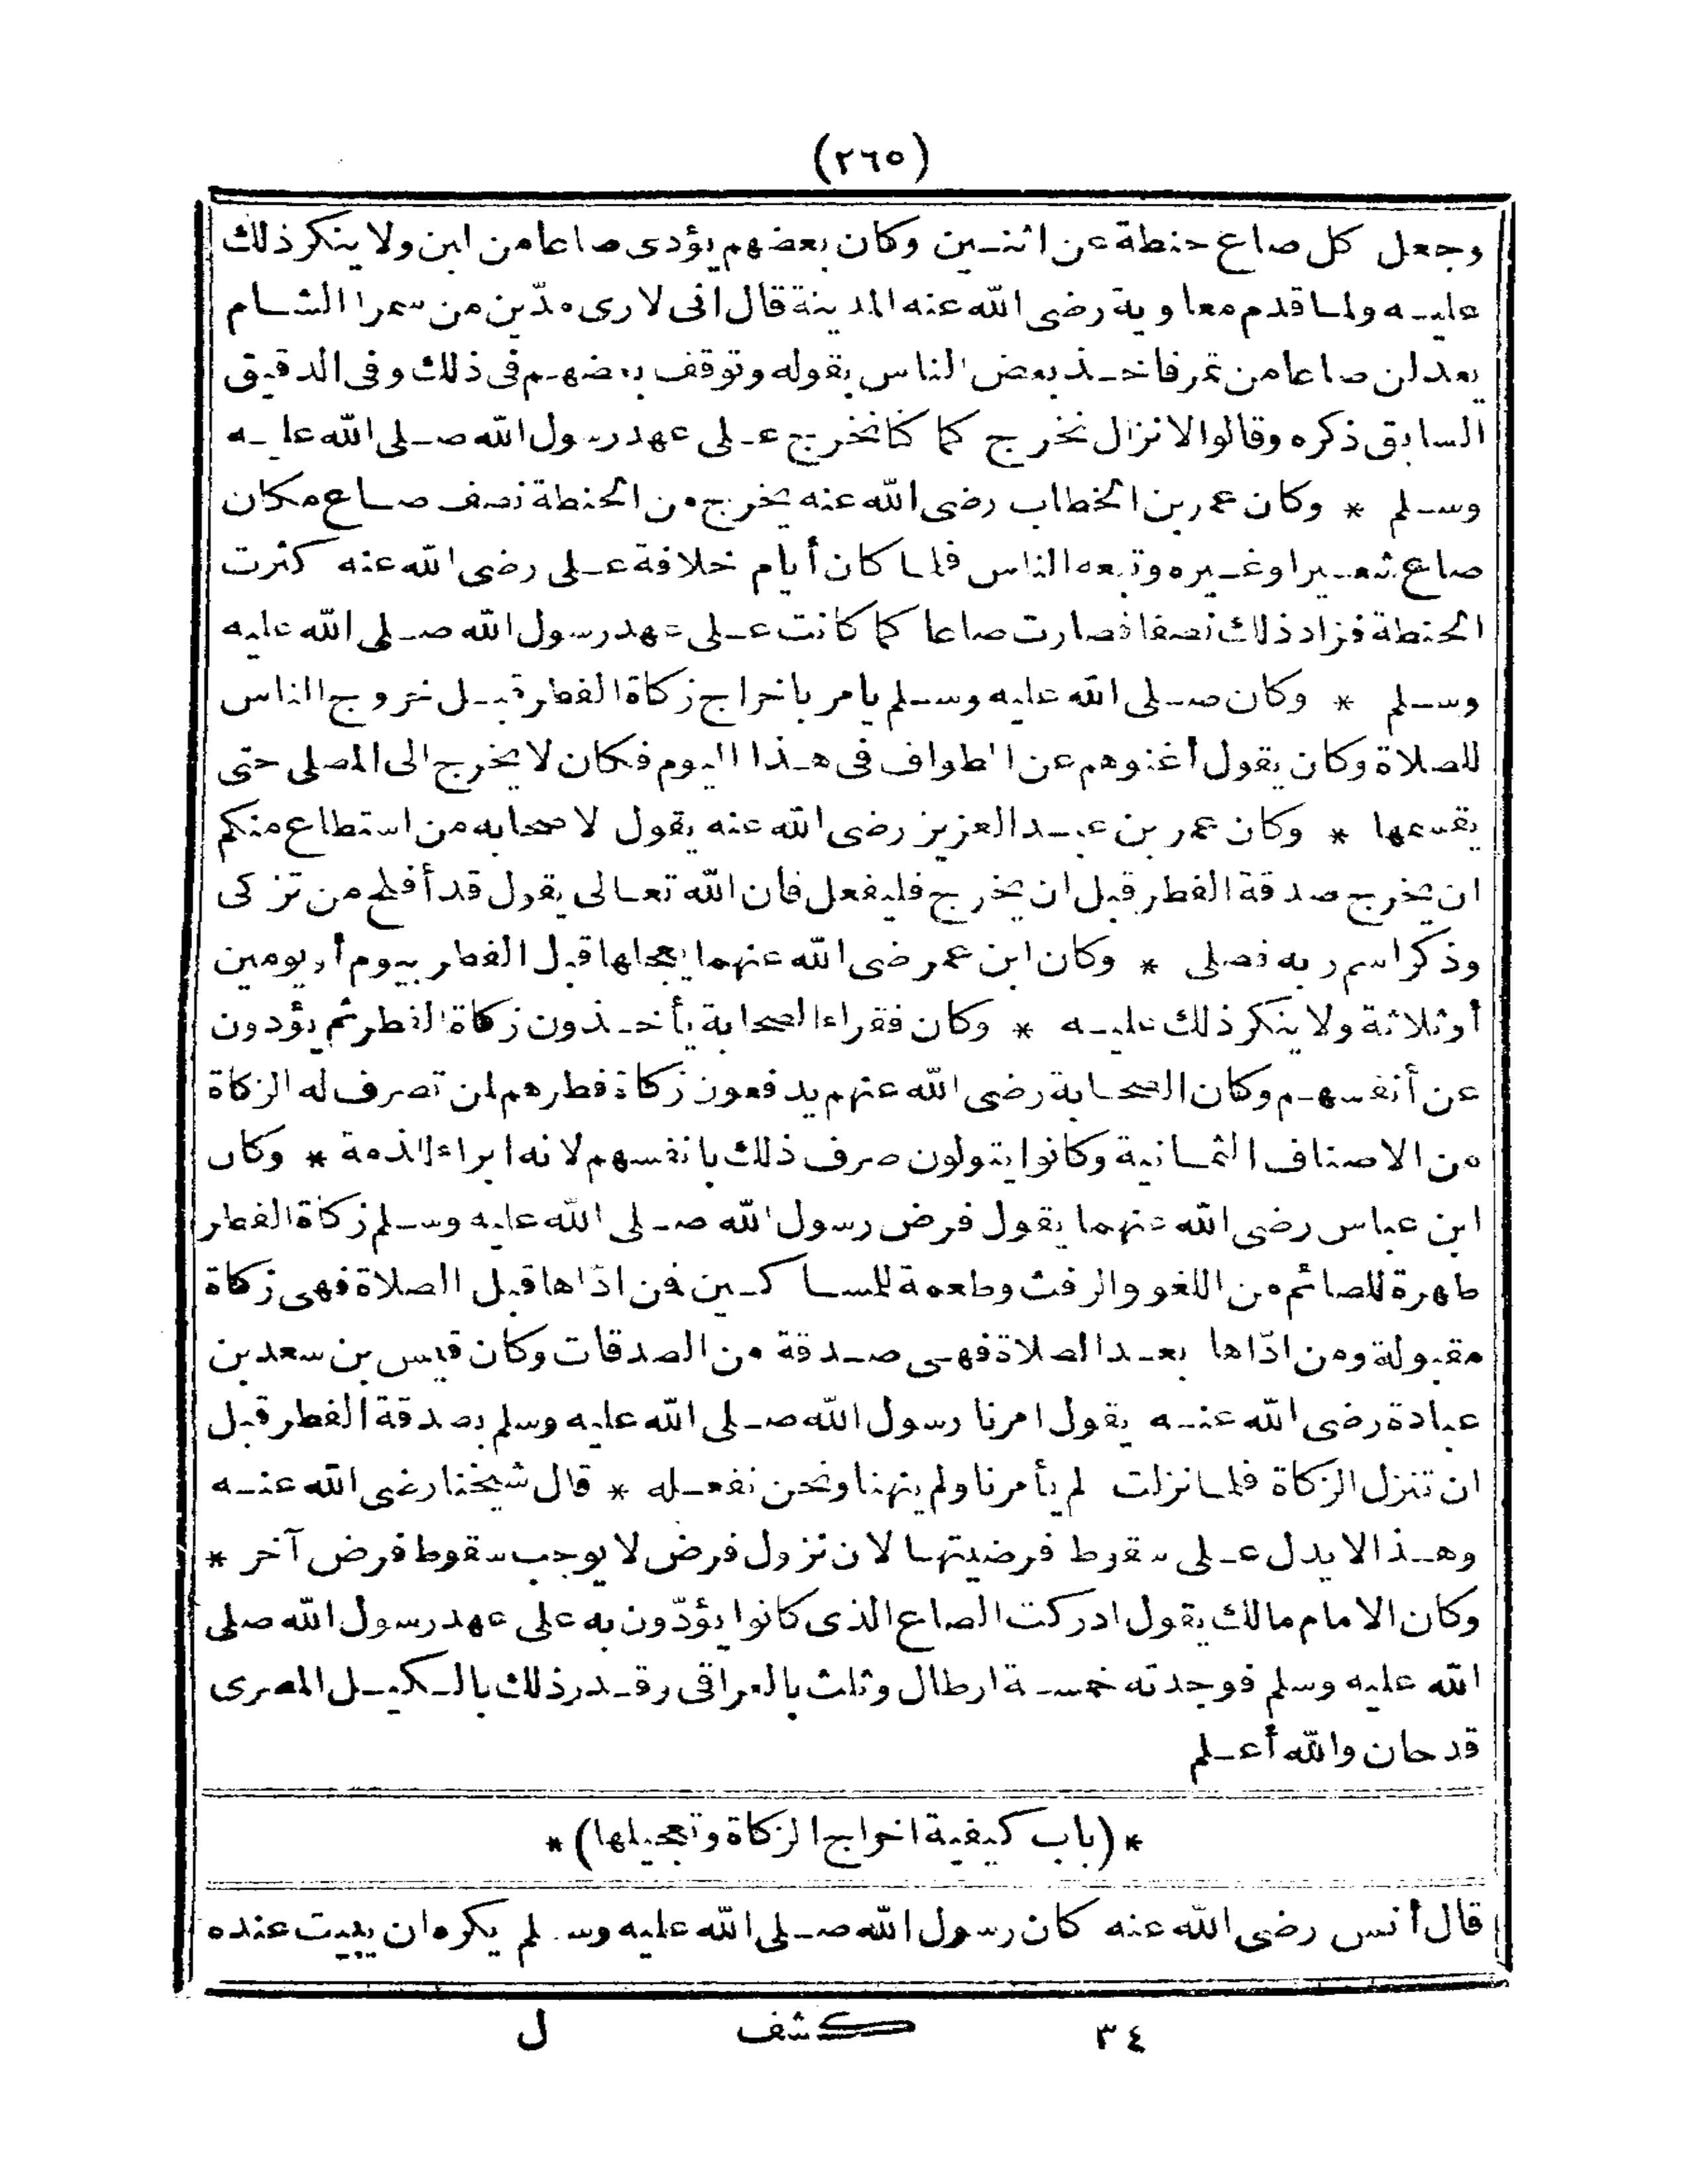 (٢٦٥)
وجعل كل صاع حنطة عن اثنين وكان بعضهم يؤدى صاعا من لبن ولا ينكر ذلك
عليه ولما قدم معاوية رضى الله عنه المدينة قال انى لارى مدّين من سمرا الشام
يعدلن صاعا من تمر فاخذ بعض الناس بقوله وتوقف بعضهم فى ذلك وفى الدقيق
السابق ذكره وقالوا لا نزال نخرج كما كنا نخرج على عهد رسول الله صلى الله عليه
وسلم * وكان عمر بن الخطاب رضى الله عنه يخرج من الحنطة نصف صاع مكان
صاع شعير او غيره وتبعه الناس فلما كان أيام خلافة على رضى الله عنه كثرت
الحنطة فزاد ذلك نصفا فصارت صاعا كما كانت على عهد رسول الله صلى الله عليه
وسلم * وكان صلى الله عليه وسلم يامر باخراج زكاة الفطر قبل خروج الناس
للصلاة وكان يقول أغنوهم عن الطواف فى هذا اليوم فكان لا يخرج الى المصلى حتى
يقسمها * وكان عمر بن عبد العزيز رضى الله عنه يقول لاصحابه من استطاع منكم
ان يخرج صدقة الفطر قبل ان يخرج فليفعل فان الله تعالى يقول قد أفلح من تزكى
وذكر اسم ربه فصلى * وكان ابن عمر رضى الله عنهما يعجلها قبل الفطر بيوم أو يومين
أو ثلاثة ولا ينكر ذلك عليه * وكان فقراء الصحابة يأخذون زكاة الفطر ثم يؤدون
عن أنفسهم وكان الصحابة رضى الله عنهم يدفعون زكاة فطرهم لمن تصرف له الزكاة
من الاصناف الثمانية وكانوا يتولون صرف ذلك بانفسهم لانه ابراء للذمة * وكان
ابن عباس رضى الله عنهما يقول فرض رسول الله صلى الله عليه وسلم زكاة الفطر
طهرة للصائم من اللغو والرفث وطعمة للمساكين فمن ادّاها قبل الصلاة فهى زكاة
مقبولة ومن ادّاها بعد الصلاة فهى صدقة من الصدقات وكان قيس بن سعد بن
عبادة رضى الله عنه يقول امرنا رسول الله صلى الله عليه وسلم بصدقة الفطر قبل
ان تنزل الزكاة فلما نزلت لم يأمرنا ولم ينهنا ونحن نفعله * قال شيخنا رضى الله عنه
وهذا لا يدل على سقوط فرضيتها لان نزول فرض لا يوجب سقوط فرض آخر *
وكان الامام مالك يقول ادركت الصاع الذى كانوا يؤدّون به على عهد رسول الله صلى
الله عليه وسلم فوجدته خمسة ارطال وثلث بالعراقى وقدر ذلك بالكيل المصرى
قدحان والله أعلم
* (باب كيفية اخراج الزكاة وتعجيلها) *
قال أنس رضى الله عنه كان رسول الله صلى الله عليه وسلم يكره ان يبيت عنده
٣٤ كشف ل